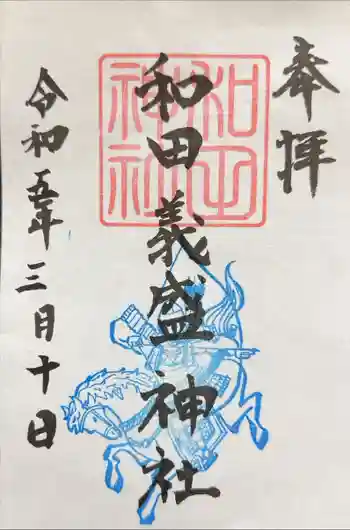 奉拝
和田神社
和田義盛神社
令和五年三月十日